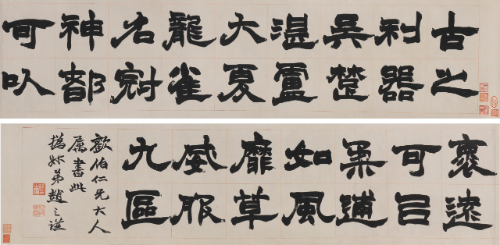 古之
利器
吳楚
湛盧
大夏
龍雀
名冠
神都
可以
褱遠
可㠯
柔逋
如風
靡草
威服
九區
歡伯仁兄大人
屬書此
撝叔弟趙之謙